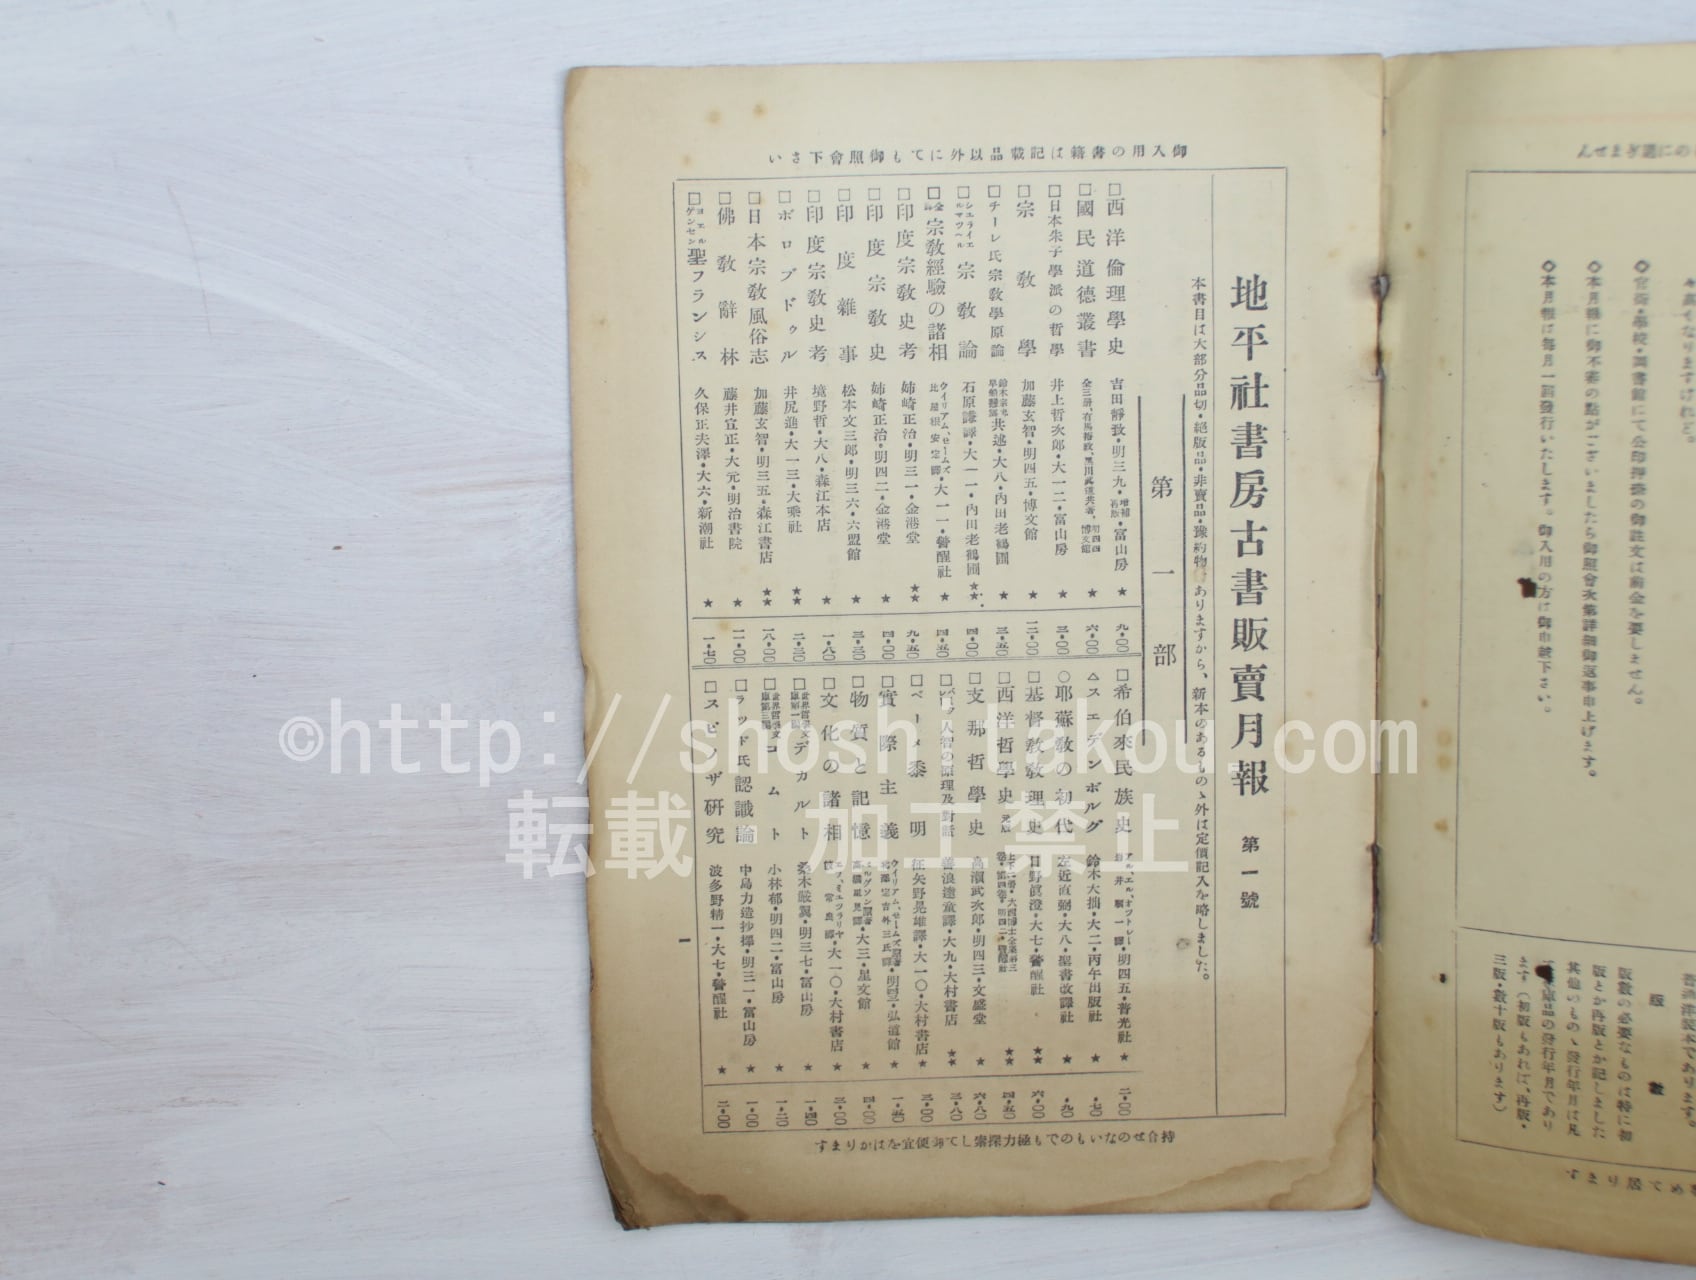 御入用の書籍は記載品以外にても御照會下さい
地平社書房古書販賣月報 第一號
本書目は大部分品切・絶版品・非賣品・豫約物 ありますから、新本のあるものゝ外は定價記入を略しました。
第一部
□西洋倫理學史 吉田靜致・明三九・增補再版・富山房 ★ 九・〇〇
□國民道德叢書 博文館 ★ 六・〇〇
□日本朱子學派の哲學 井上哲次郎・大一二・富山房 ★ 三・〇〇
□宗敎學 加藤玄智・明四五・博文館 ★ 一二・〇〇
□チーレ氏宗敎學原論 鈴木宗忠 共述・大八・内田老鶴圃 ★ 三・五〇
□シユライエルマツヘル宗敎論 石原謙譯・大一一・内田老鶴圃 ★★ 四・〇〇
□宗敎經驗の諸相 ウイリアム、ゼームズ 比屋根安定譯・大一一・警醒社 ★ 四・五〇
□印度宗敎史考 姉崎正治・明三一・金港堂 ★★ 九・五〇
□印度宗敎史 姉崎正治・明四二・金港堂 ★ 四・〇〇
□印度雜事 松本文三郎・明三六・六盟館 ★ 三・三〇
□印度宗敎史考 境野哲・大八・森江本店 ★ 一・八〇
□ボロブドゥル 井尻進・大一三・大乘社 ★★ 二・三〇
□日本宗敎風俗志 加藤玄智・明三五・森江書店 ★★ 一八・〇〇
□佛敎辭林 藤井宣正・大元・明治書院 ★ 一一・〇〇
□ヨエルゲンセン聖フランシス 久保正夫譯・大六・新潮社 ★ 一・七〇
□希伯來民族史 明四五・普光社 ★ 二・〇〇
△スエデンボルグ 鈴木大拙・大二・丙午出版社 ★ ・七〇
○耶蘇敎の初代 左近直弼・大八・聖書改譯社 ★ ・九〇
□基督敎敎理史 日野眞澄・大七・警醒社 ★★ 六・〇〇
□西洋哲學史 ★★ 四・五〇
□支那哲學史 高瀨武次郎・明四三・文盛堂 ★ 六・八〇
□人智の原理及對話 善浪達童譯・大九・大村書店 ★★ 三・八〇
□ベーメ黎明 征矢野晃雄譯・大一〇・大村書店 ★ 三・〇〇
□實際主義 ウイリアム、ゼームズ原著 弘道館 ★ 一・五〇
□物質と記憶 ベルグソン原著 高橋里見譯・大三・星文館 ★ 四・〇〇
□文化の諸相 大一〇・大村書店 ★ 三・〇〇
□デカルト 桑木嚴翼・明三七・富山房 ★ 一・四〇
□コムト 小林郁・明四二・富山房 ★ 一・二〇
□ラッド氏認識論 中島力造抄譯・明三一・富山房 ★ 一・〇〇
□スピノザ硏究 波多野精一・大七・警醒社 ★ 二・〇〇
一
持合せのないものでも極力探索して御便宜をはかります
のに過ぎません
高くなりますけれど。
◇官衙・學校・圖書館にて公印押捺の御註文は前金を要しません。
◇本月報に御不審の點がございましたら御照會次第詳細御返事申上げます。
◇本月報は毎月一回發行いたします。御入用の方は御申越下さい。
版數
版數の必要なものは特に初
版とか再版とか記しました
其他のものゝ發行年月は見
品の發行年月であり
ます（初版もあれば、再版・
三版・數十版もあります）
めて居ります
©http://shosh takou.com
転載・加工禁止